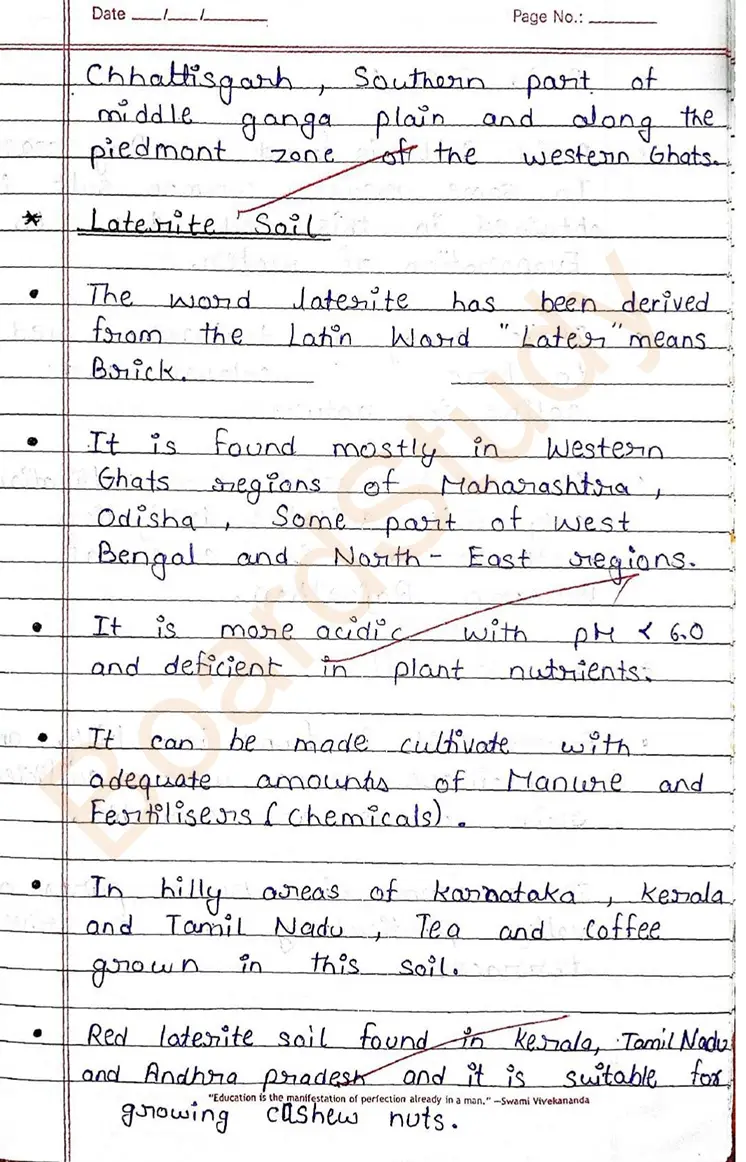 Date ___/___/______ Page No.: ______
Chhattisgarh, Southern part of
middle ganga plain and along the
piedmont zone of the western Ghats.
* Laterite Soil
• The word laterite has been derived
from the Latin Word "Later" means
Brick.
• It is found mostly in Western
Ghats regions of Maharashtra,
Odisha, Some part of West
Bengal and North-East regions.
• It is more acidic with pH < 6.0
and deficient in plant nutrients.
• It can be made cultivate with
adequate amounts of Manure and
Fertilisers (chemicals).
• In hilly areas of Karnataka, Kerala
and Tamil Nadu, Tea and Coffee
grown in this soil.
• Red laterite soil found in Kerala, Tamil Nadu
and Andhra pradesh and it is suitable for
"Education is the manifestation of perfection already in a man." –Swami Vivekananda
growing cashew nuts.
BoardStudy